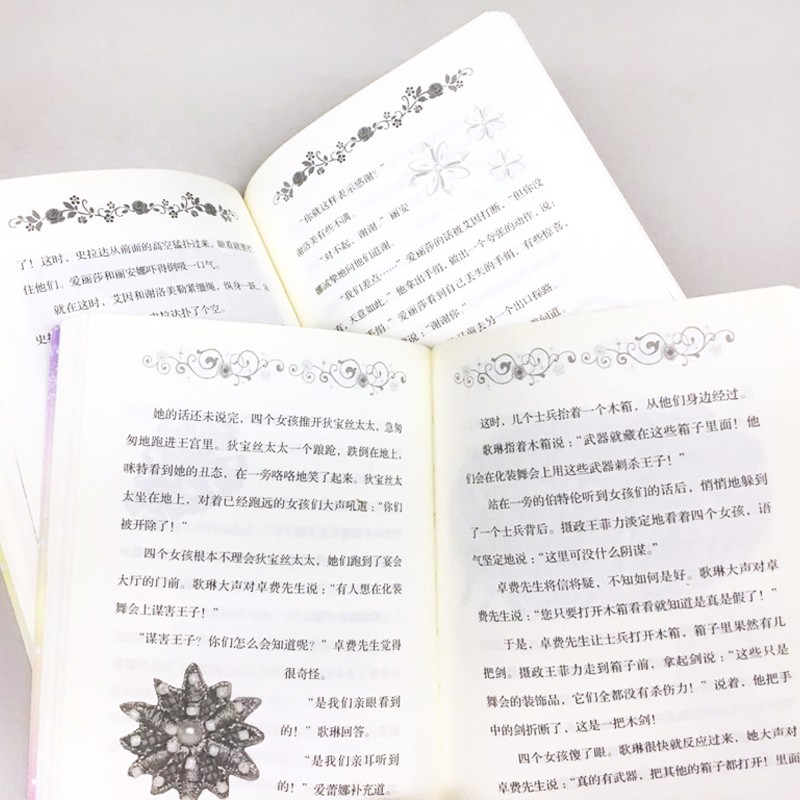 了！这时，史拉达从前面的高空猛扑过来，眼看就要抓
住他们。爱丽莎和丽安娜吓得倒吸一口气。
就在这时，艾因和谢洛美勒紧缰绳，纵身一跃，
史拉达扑了个空。
“你就这样表示感谢？”
谢洛美有些不满。
“对不起，谢谢。”丽安
娜诚挚地向他们道谢。
“我们差点……”爱丽莎的话被艾因打断，“但你没
天意如此。”他拿出手绢，做出一个夸张的动作，说：
手绢。”爱丽莎看到自己丢失的手绢，有些惊喜，
“谢谢你。”
去另一个出口探路。
她的话还未说完，四个女孩推开狄宝丝太太，急匆
匆地跑进王宫里。狄宝丝太太一个踉跄，跌倒在地上，
咪特看到她的丑态，在一旁咯咯地笑了起来。狄宝丝太
太坐在地上，对着已经跑远的女孩们大声吼道：“你们
被开除了！”
四个女孩根本不理会狄宝丝太太，她们跑到了宴会
大厅的门前。歌琳大声对卓费先生说：“有人想在化装
舞会上谋害王子！”
“谋害王子？你们怎么会知道呢？”卓费先生觉得
很奇怪。
“是我们亲眼看到
的！”歌琳回答。
“是我们亲耳听到
的！”爱蕾娜补充道。
这时，几个士兵抬着一个木箱，从他们身边经过。
歌琳指着木箱说：“武器就藏在这些箱子里面！他
们会在化装舞会上用这些武器刺杀王子！”
站在一旁的伯特伦听到女孩们的话后，悄悄地躲到
了一个士兵背后。摄政王菲力淡定地看着四个女孩，语
气坚定地说：“这里可没什么阴谋。”
卓费先生将信将疑，不知如何是好。歌琳大声对卓
费先生说：“您只要打开木箱看看就知道是真是假了！”
于是，卓费先生让士兵打开木箱，箱子里果然有几
把剑。摄政王菲力走到箱子前，拿起剑说：“这些只是
舞会的装饰品，它们全都没有杀伤力！”说着，他把手
中的剑折断了，这是一把木剑！
四个女孩傻了眼。歌琳很快就反应过来，她大声对
卓费先生说：“真的有武器，把其他的箱子都打开！里面